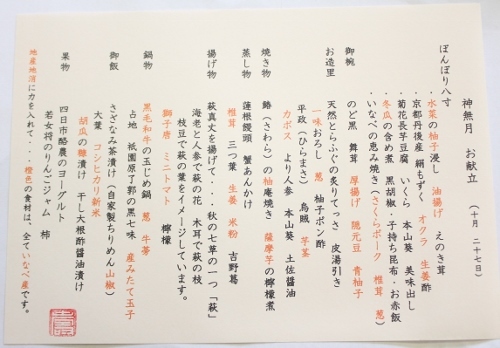 神無月　お献立　（十月　二十七日）
ぼんぼり八寸
・水菜の柚子浸し　油揚げ　えのき茸
・京都丹後産　絹もずく　オクラ　生姜酢
・菊花長芋豆腐　いくら　本山葵　美味出し
・冬瓜の含め煮　黒胡椒・子持ち昆布・お赤飯
・いなべの恵み焼き（さくらポーク　椎茸　葱）
御椀　のど黒　舞茸　厚揚げ　隠元豆　青柚子
お造里　天然とらふぐの炙りてっさ　皮湯引き
一味おろし　葱　柚子ポン酢
平政（ひらまさ）　烏賊　芋茎
カボス　より人参　本山葵　土佐醤油
焼き物　鰆（さわら）の柚庵焼き　薩摩芋の檸檬煮
蒸し物　蓮根饅頭　蟹あんかけ
椎茸　三つ葉　生姜　米粉　吉野葛
揚げ物　萩真丈を揚げて・・・秋の七草の一つ「萩」
海老と人参で萩の花　木耳で萩の枝
枝豆で萩の葉をイメージしています。
獅子唐　ミニトマト　檸檬
鍋物　黒毛和牛の玉じめ鍋　葱　牛蒡
占地　祇園原了郭の黒七味　産みたて玉子
御飯　さざなみ茶漬け（自家製ちりめん山椒）
大葉　コシヒカリ新米
胡瓜の糠漬け　干し大根酢醤油漬け
果物　四日市酪農のヨーグルト
若女将のりんごジャム　柿
地産地消に力を入れて・・・橙色の食材は、全ていなべ産です。